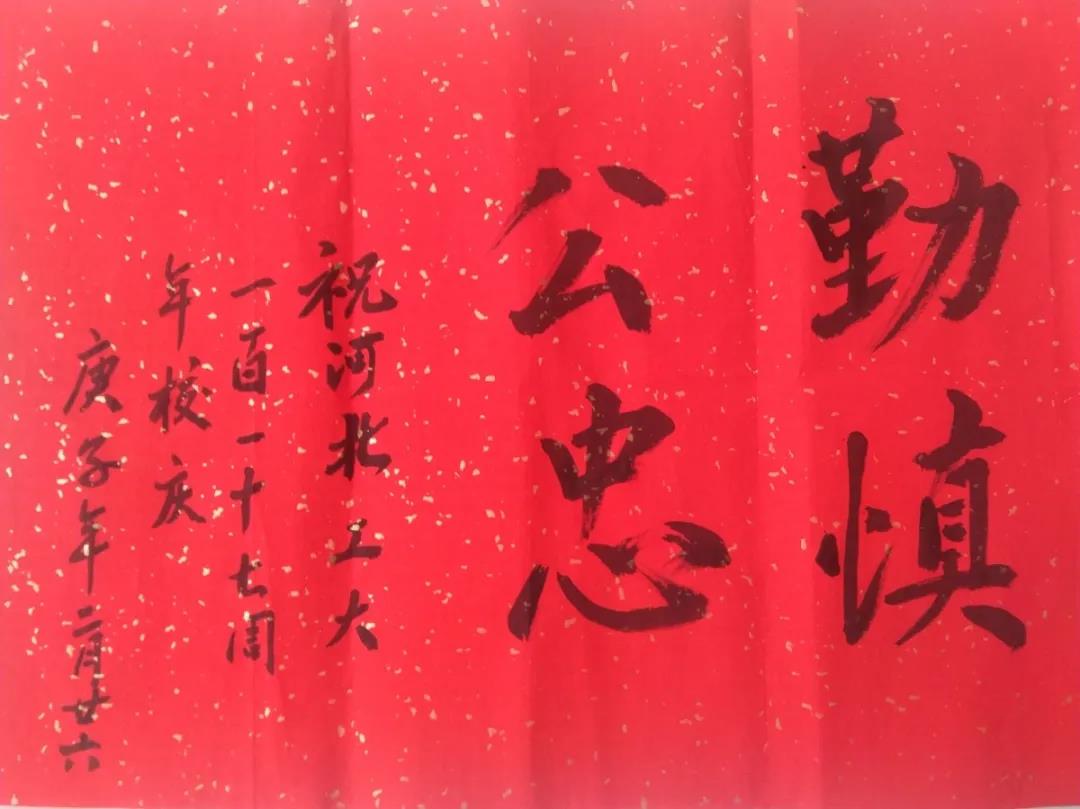 勤慎
公忠
祝河北工大
一百一十七周
年校庆
庚子年二月廿六